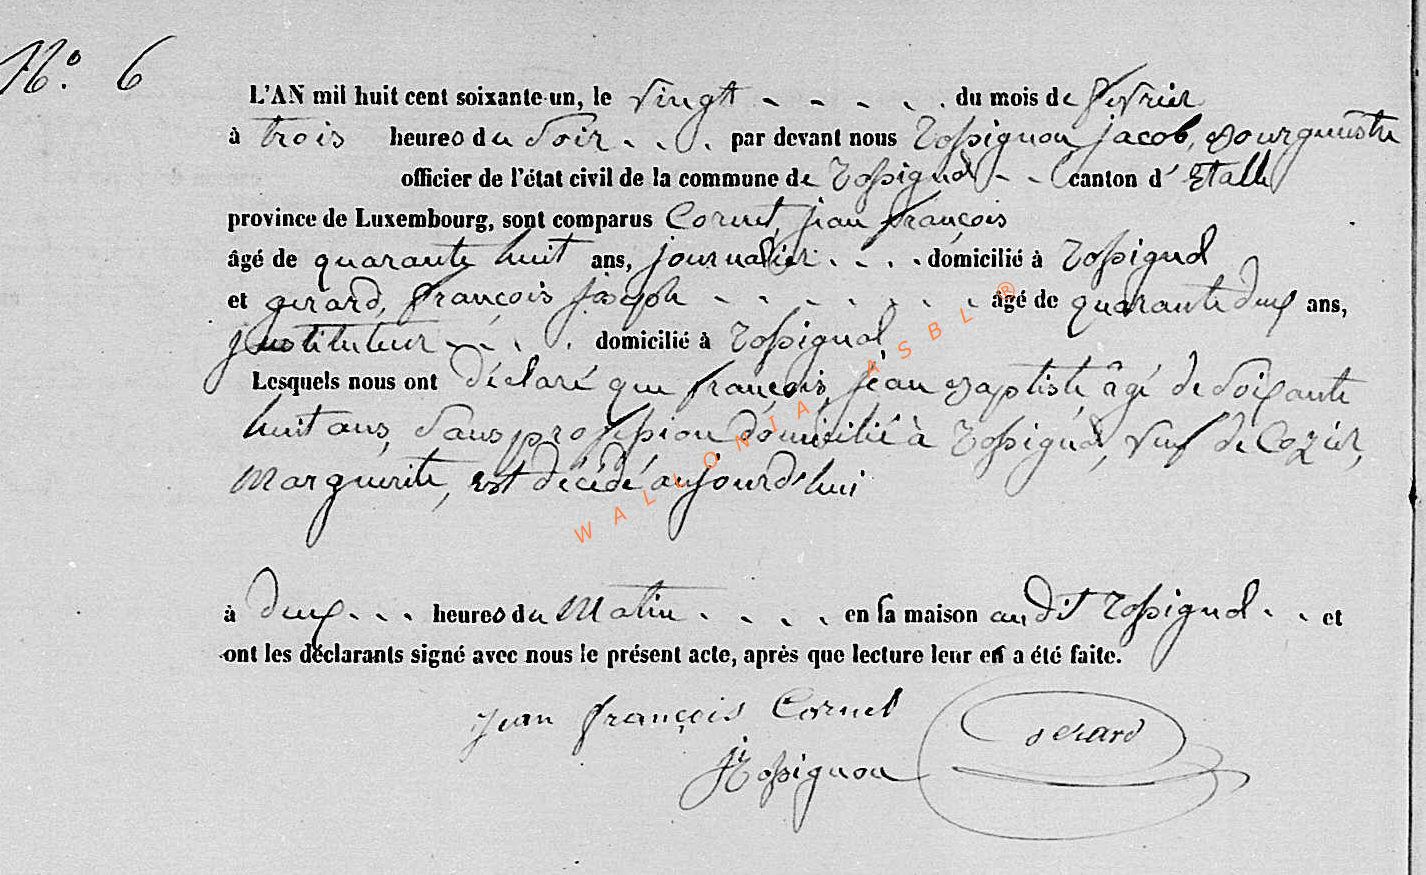 No. 6
L'AN mil huit cent soixante-un, le vingt - - - - - du mois de fevrier
à trois heures du Soir - - - par devant nous Rossignon jacob, Bourgmestre
officier de l'état civil de la commune de Rossignol - - canton d' Etalle
province de Luxembourg, sont comparus Cornet, jean françois
âgé de quarante huit ans, journalier - - - - domicilié à Rossignol
et gerard, françois joseph - - - - - - - âgé de quarante deux ans,
jnstituteur - - - - domicilié à Rossignol
Lesquels nous ont déclaré que françois, jean Baptiste âgé de Soixante
huit ans, Sans profession domicilié à Rossignol, veuf de Cozier,
Marguerite, est décédé aujourd'hui
à deux - - - heures du Matin - - - - en sa maison au dit Rossignol - - et
ont les déclarants signé avec nous le présent acte, après que lecture leur en a été faite.
jean françois Cornet
Gerard
J Rossignon
WALLONIA ASBL ®